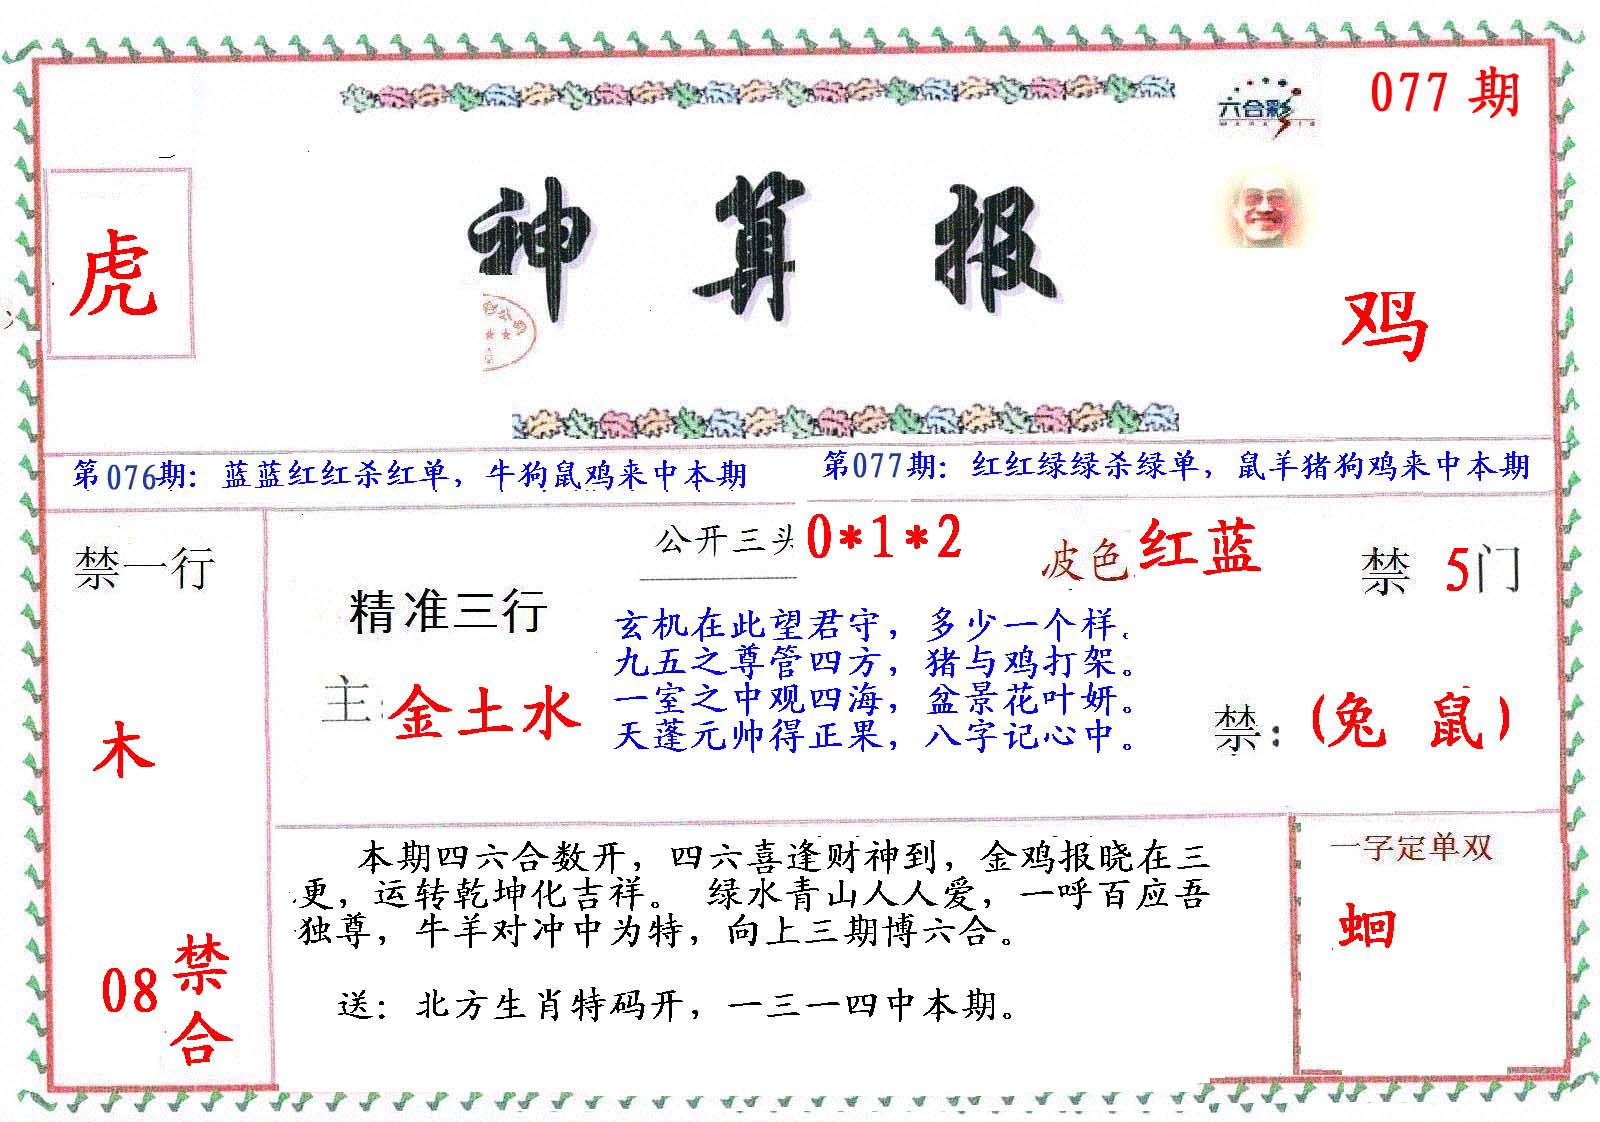 077 期
六合彩
虎
神算报
鸡
第076期：蓝蓝红红杀红单，牛狗鼠鸡来中本期
第077期：红红绿绿杀绿单，鼠羊猪狗鸡来中本期
禁一行
木
08 禁合
公开三头 0*1*2
波色 红蓝
禁 5门
精准三行
主：金土水
玄机在此望君守，多少一个样。
九五之尊管四方，猪与鸡打架。
一室之中观四海，盆景花叶妍。
天蓬元帅得正果，八字记心中。
禁：(兔 鼠)
本期四六合数开，四六喜逢财神到，金鸡报晓在三
更，运转乾坤化吉祥。 绿水青山人人爱，一呼百应吾
独尊，牛羊对冲中为特，向上三期博六合。
送：北方生肖特码开，一三一四中本期。
一字定单双
蛔